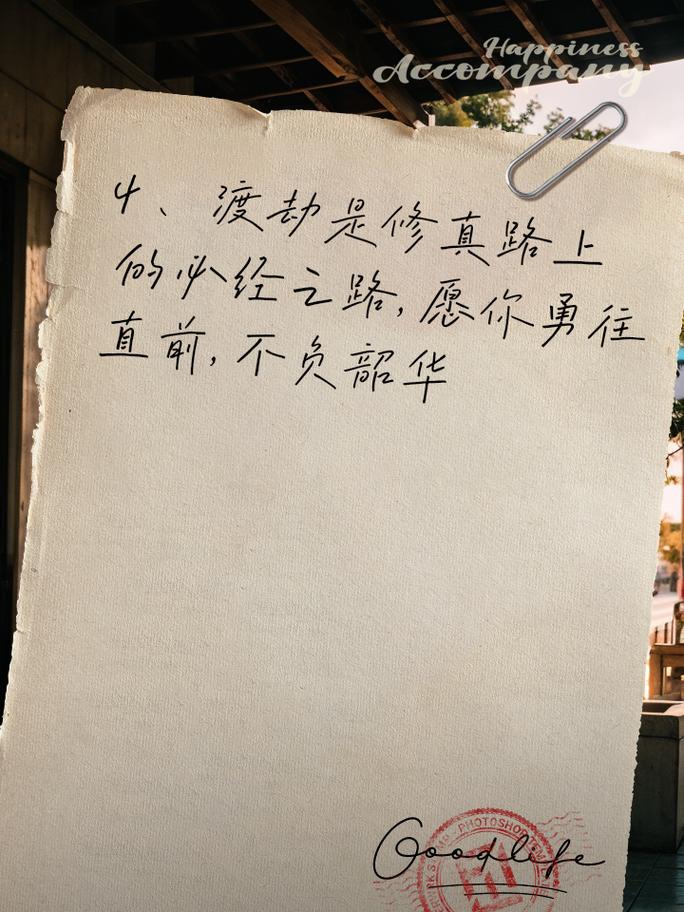 Happiness
Accompany
4、渡劫是修真路上
的必经之路,愿你勇往
直前,不负韶华
PHOTOSHOP
Goodlife